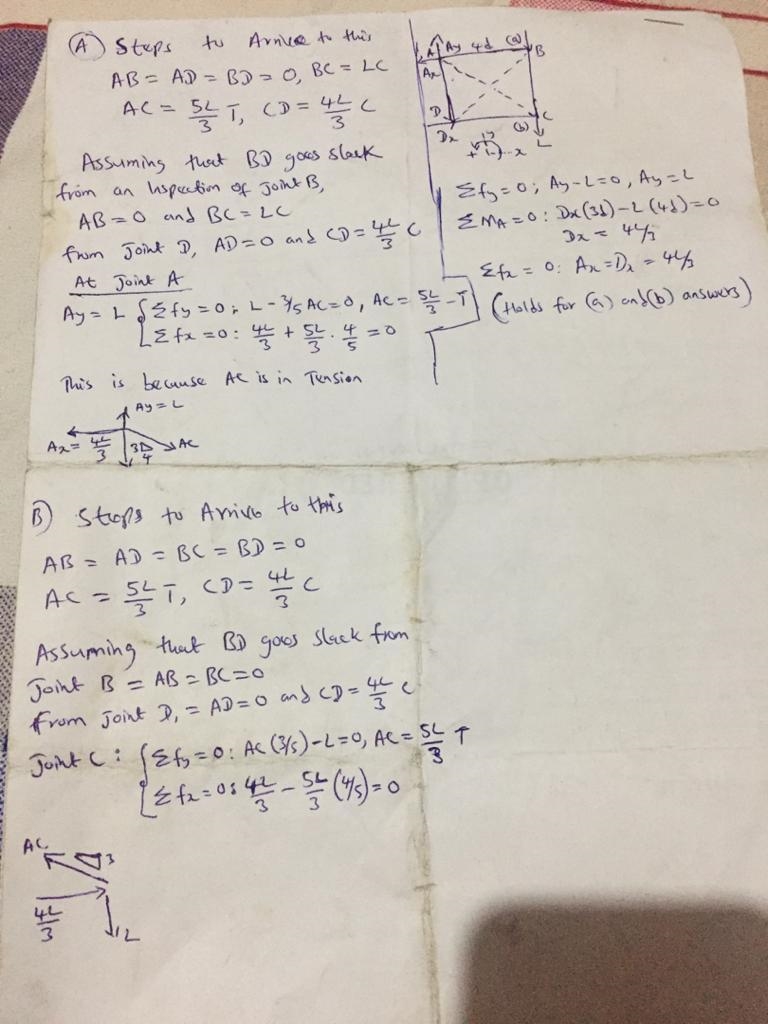 (A) Steps to Arrive to this
AB = AD = BD = 0, BC = LC
AC = 5L/3 T, CD = 4L/3 C
Assuming that BD goes slack
from an Inspection of Joint B,
AB = 0 and BC = LC
from Joint D, AD = 0 and CD = 4L/3 C
At Joint A
Ay = L { Σfy = 0: L - 3/5 AC = 0, AC = 5L/3 - T
Σfx = 0: 4L/3 + 5L/3 . 4/5 = 0
This is because AC is in Tension
Ay = L
Ax = 4L/3
3
4
AC
A Ay 4d (a) B
Ax
D (b) C
Dx
L
+ x
Σfy = 0; Ay - L = 0, Ay = L
ΣMA = 0: Dx(3d) - L(4d) = 0
Dx = 4L/3
Σfx = 0: Ax = Dx = 4L/3
(Holds for (a) and (b) answers)
B) Steps to Arrive to this
AB = AD = BC = BD = 0
AC = 5L/3 T, CD = 4L/3 C
Assuming that BD goes slack from
Joint B = AB = BC = 0
From Joint D, = AD = 0 and CD = 4L/3 C
Joint C: { Σfy = 0: AC (3/5) - L = 0, AC = 5L/3 T
Σfx = 0: 4L/3 - 5L/3 (4/5) = 0
AC
3
4L/3
L